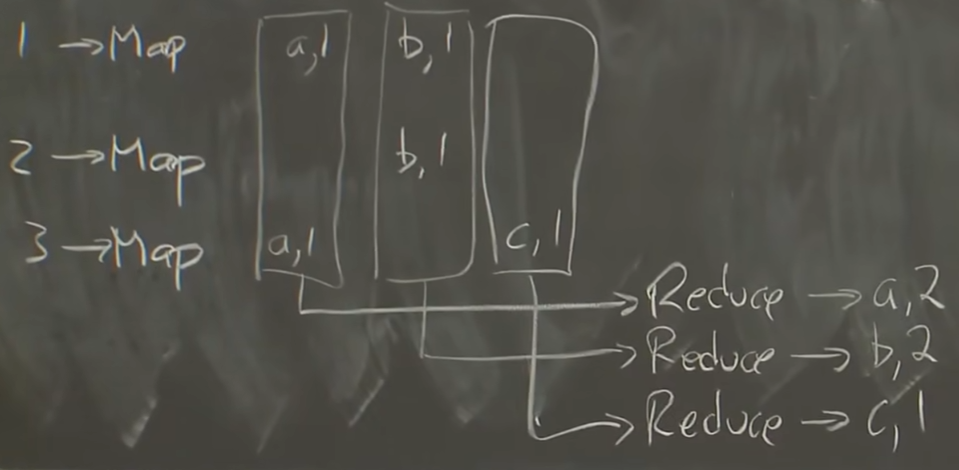 1 → Map a,1 b,1
2 → Map b,1
3 → Map a,1 c,1
Reduce → a,2
Reduce → b,2
Reduce → c,1